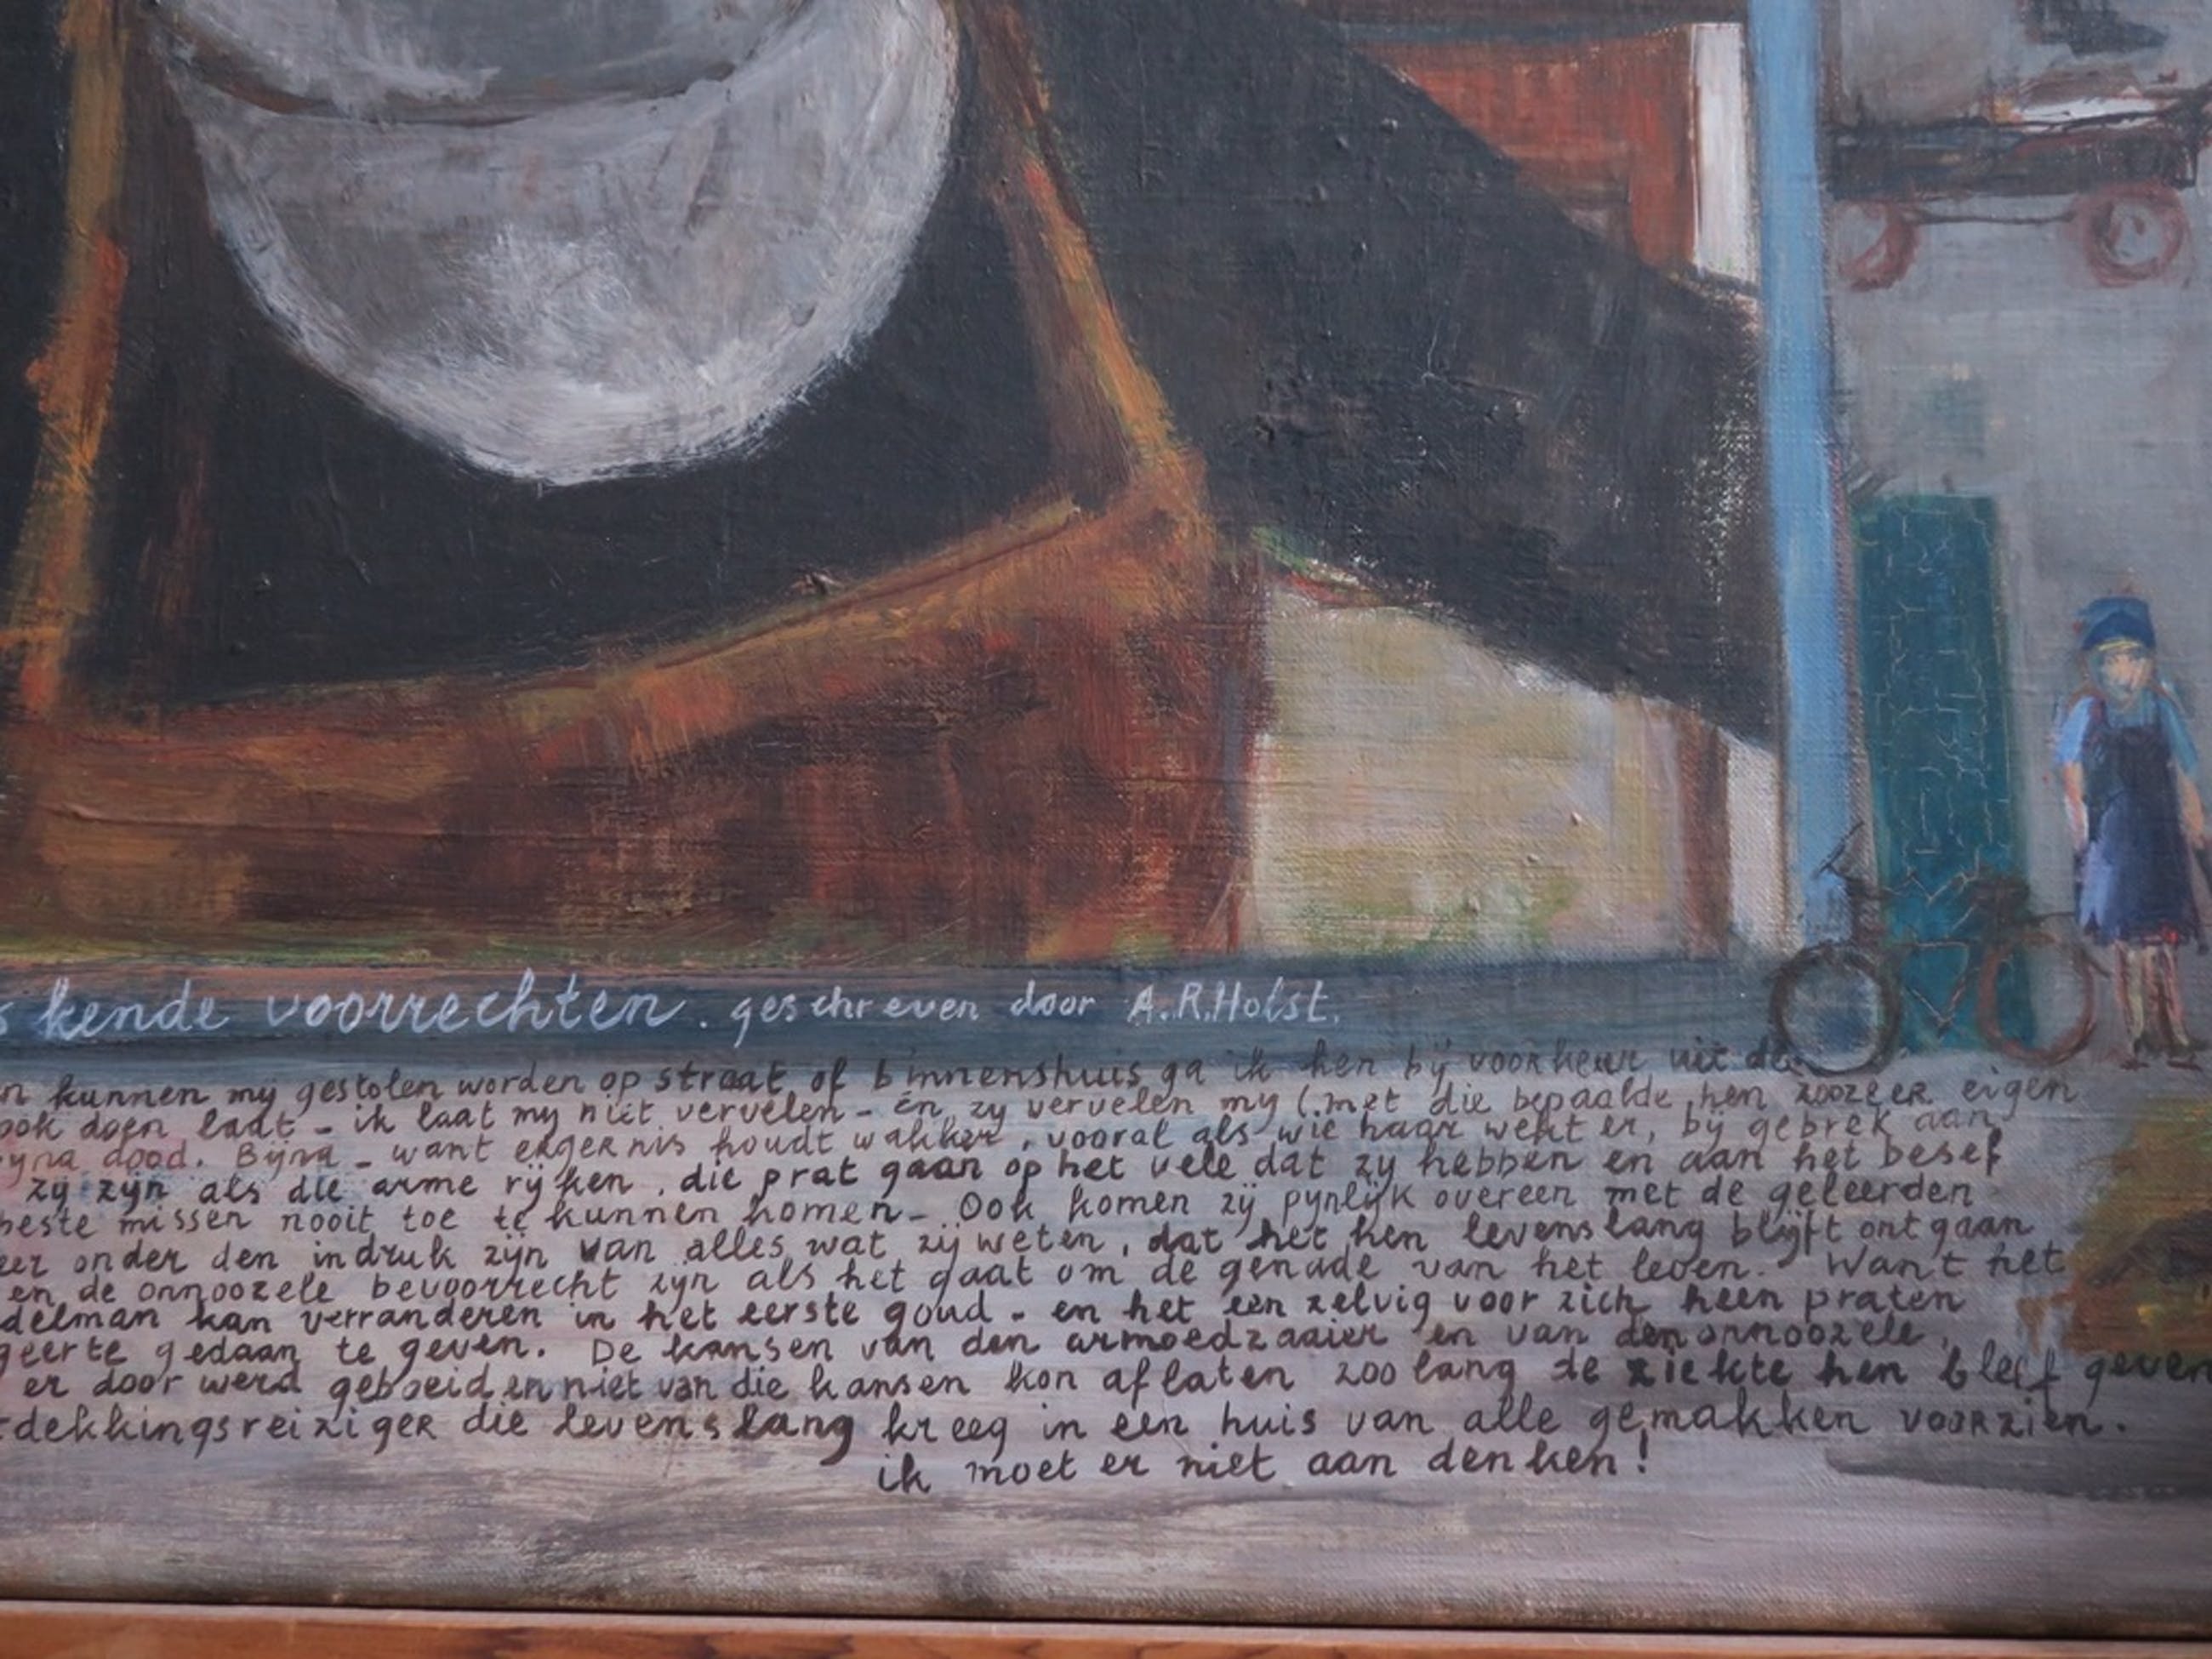 kende voorrechten. geschreven door A.R.Holst.
kunnen mij gestolen worden op straat of binnenshuis ga ik hen bij voorkeur uit de
ook doen laat - ik laat mij niet vervelen - En zij vervelen mij (met die bepaalde hen zoozeer eigen
dood. Bijna - want ergernis houdt wakker, vooral als wie haar wekt er, bij gebrek aan
zij zijn als die arme rijken, die prat gaan op het vele dat zij hebben en aan het besef
beste missen nooit toe te kunnen komen - Ook komen zij pijnlijk overeen met de geleerden
onder den indruk zijn van alles wat zij weten, dat het hen levenslang blijft ontgaan
en de onnoozele bevoorrecht zijn als het gaat om de genade van het leven. Want het
delman kan verranderen in het eerste goud - en het een zelvig voor zich heen praten
geerte gedaan te geven. De kansen van den armoedzaaier en van den onnoozele,
er door werd geboeid en niet van die kansen kon aflaten zoo lang de ziekte hen bleef geven
tdekkingsreiziger die levenslang kreeg in een huis van alle gemakken voorzien.
ik moet er niet aan denken!